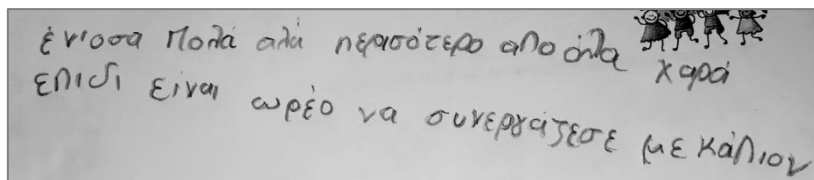 ένιοσα Πολά αλά περασότερο απο όλα χαρά
επιδι είναι ωρέο να συνεργάζεσε με κάπιον